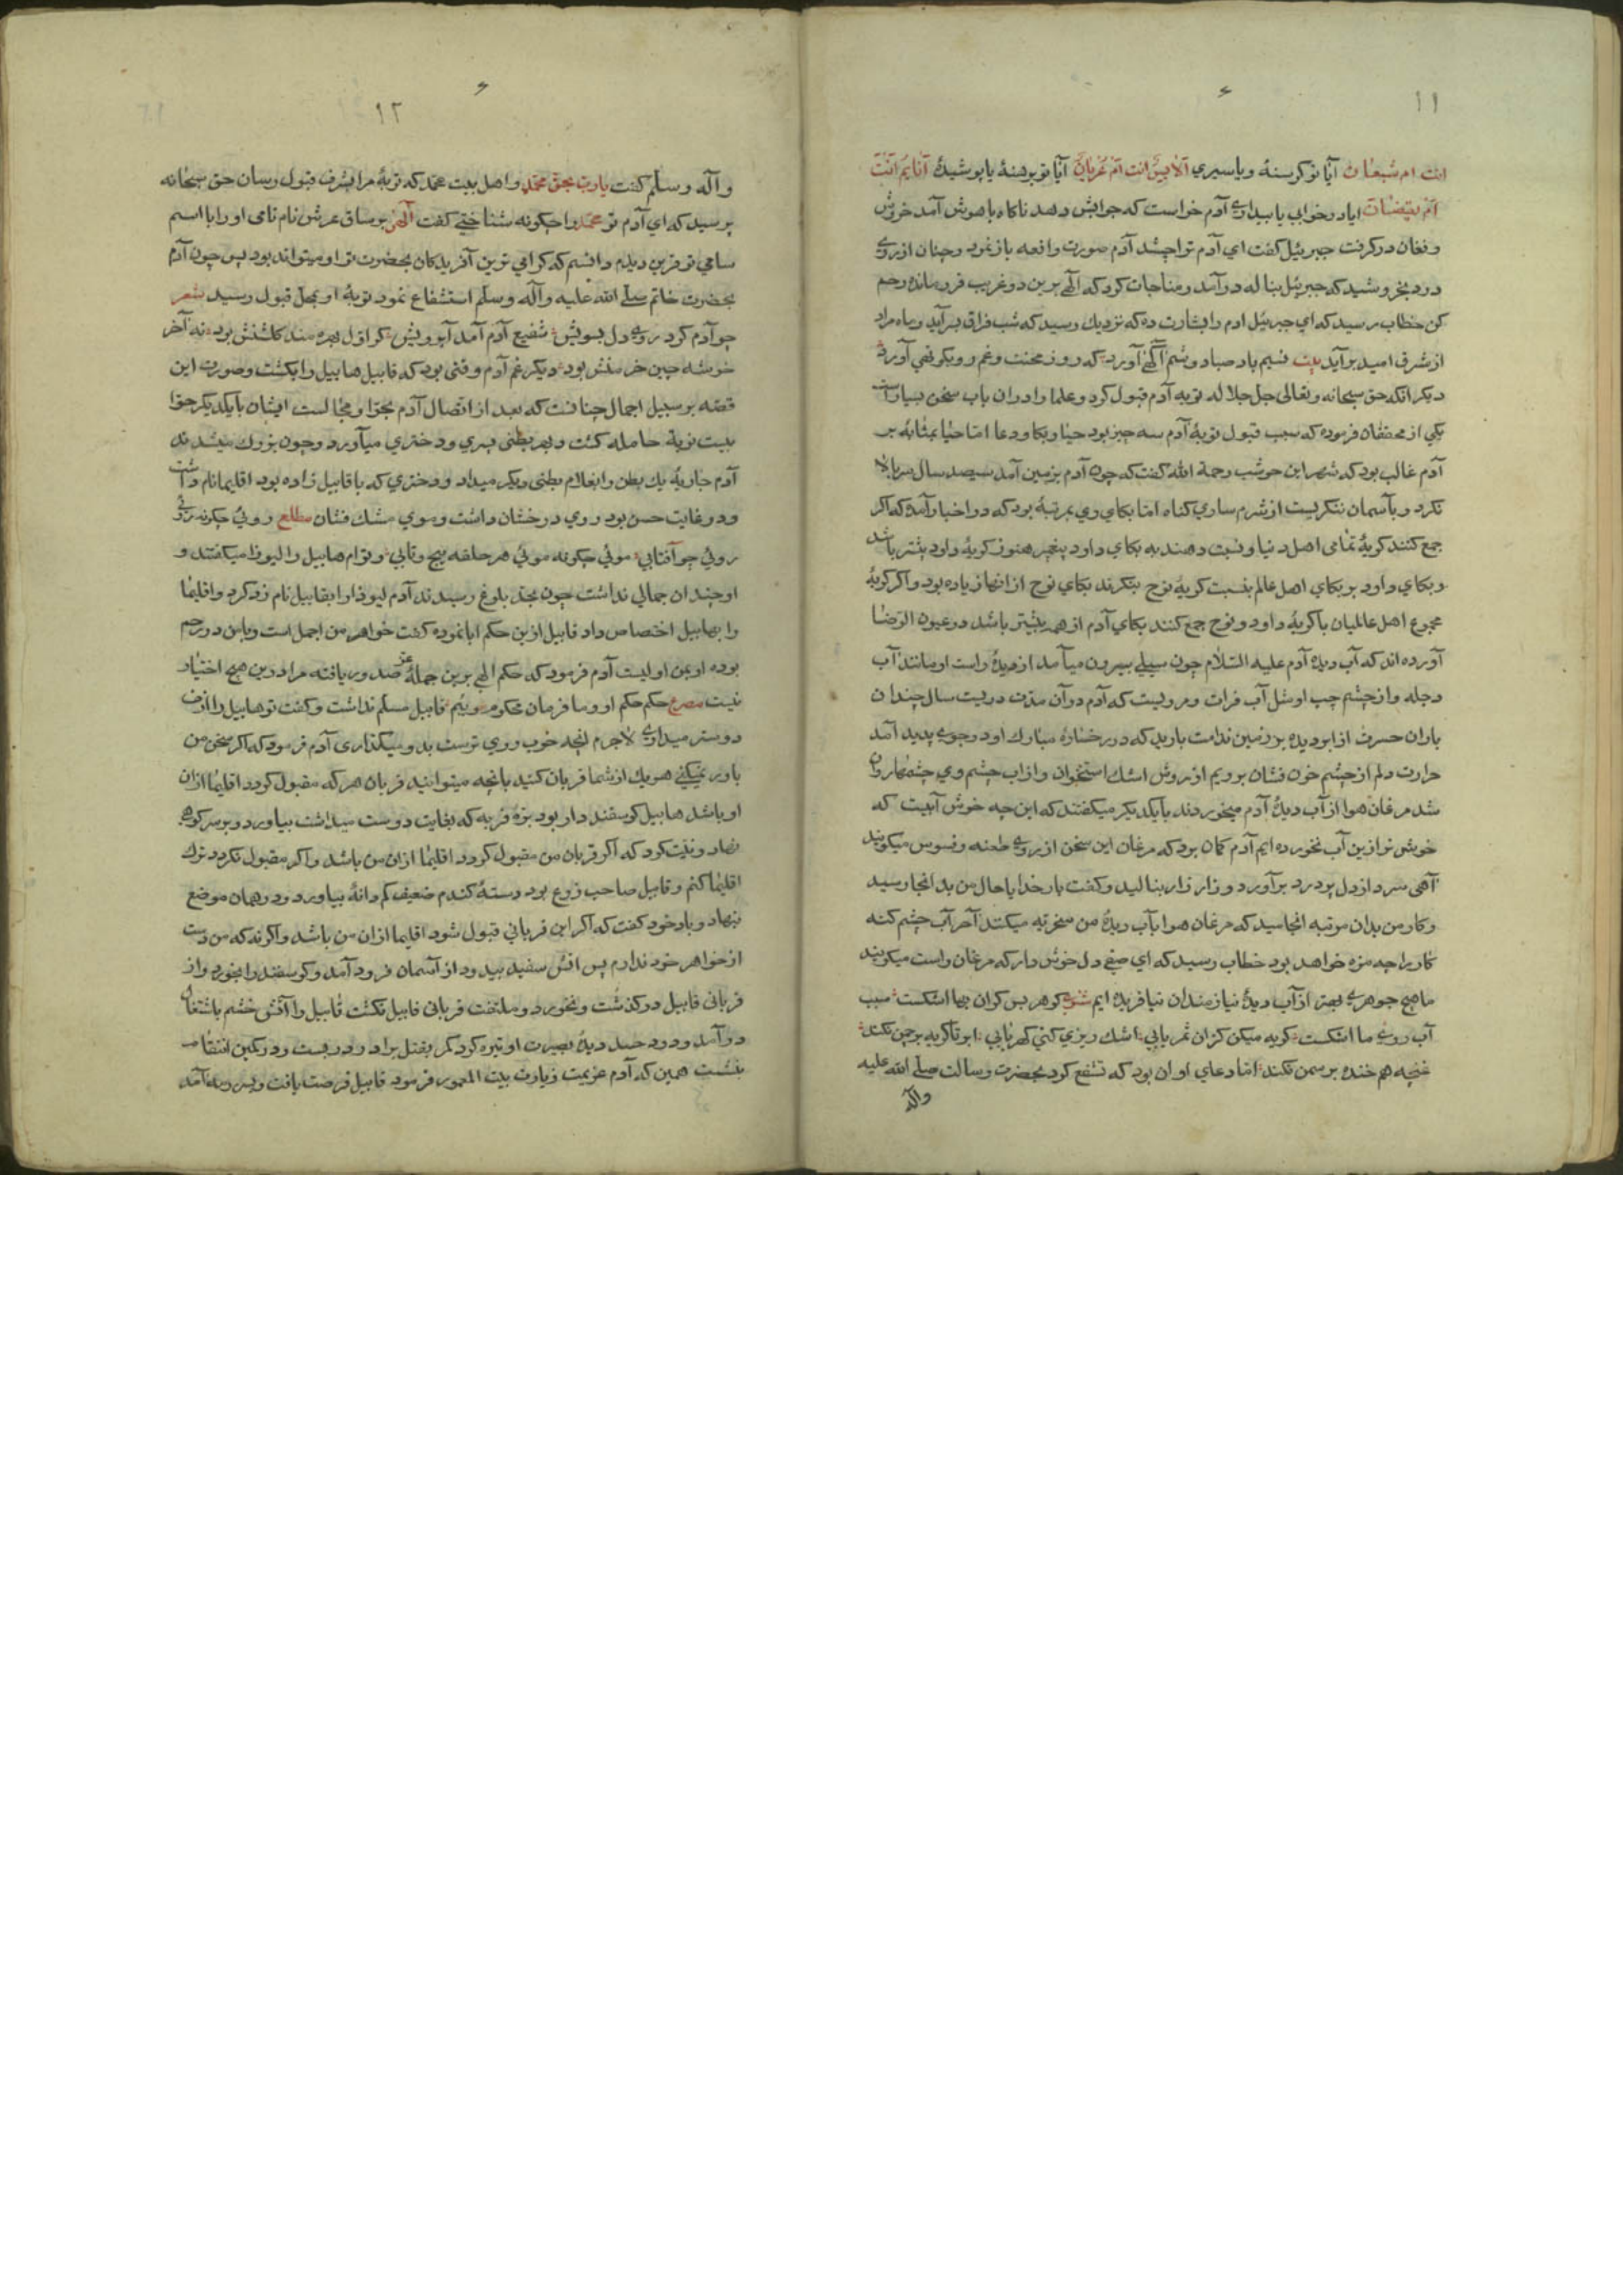 ۱۱
انت ام شبعان آیا تو کرسنهٔ ویا سیری الابس انت ام عریان آیا تو برهنهٔ یا پوشیدهٔ انایم انت
ام یقیضان ایا درخوابی یا بیداری آدم خواست که جوابش دهد ناکاه باهوش آمد خروش
و فغان درکرفت جبرئیل کفت ای آدم ترا چشد آدم صورت واقعه باز نمود و چنان از روی
درد بخروشید که جبرئیل بناله درآمد و مناجات کرد که الهی برین دو غریب فرومانده رحم
کن خطاب رسید که ای جبرئیل ادم را بشارت ده که نزدیك رسید که شب فراق بسرآید و ماه مراد
از شرق امید برآید بیت نسیم باد صبا دوشم آکهی آورد که روز محنت و غم رو بکوتهی آورد
دیکر انکه حق سبحانه و تعالی جل جلاله توبه آدم قبول کرد و علما را دران باب سخن بسیار است
یکی از محققان فرموده که سبب قبول توبهٔ آدم سه چیز بود حیا و بکا و دعا اما حیا بمثابهٔ بر
آدم غالب بود که شهر ابن حوشب رحمة الله کفت که چون آدم بزمین آمد سیصد سال سر بالا
نکرد و بآسمان ننکریست از شرم ساری کناه اما بکای وی بمرتبهٔ بود که در اخبار آمده که اکر
جمع کنند کریهٔ تمامی اهل دنیا و نسبت دهند به بکای داود پیغمبر هنوز کریهٔ داود بیشتر باشد
و بکای داود بر بکای اهل عالم بنسبت کریهٔ نوح بنکرند بکای نوح از انها زیاده بود و اکر کریهٔ
مجموع اهل عالمیان با کریهٔ داود و نوح جمع کنند بکای آدم از همه بیشتر باشد در عیون الرضا
آورده اند که آب دیدهٔ آدم علیه السلام چون سیلی بیرون میآمد از دیدهٔ راست او مانند آب
دجله و از چشم چپ او مثل آب فرات و مرویست که آدم در آن مدت دویست سال چندان
باران حسرت از ابر دیده بر زمین ندامت بارید که در رخسارهٔ مبارك او دو جوی پدید آمد
حرارت دلم از چشم خون فشان برویم از روش اشك استخوان و از اب چشم وی چشمها روان
شد مرغان هوا از آب دیدهٔ آدم میخوردند بایکدیکر میکفتند که این چه خوش آبیست که
خوش تر از ین آب نخورده ایم آدم کمان بود که مرغان این سخن از روی طعنه و فسوس میکویند
آهی سرد از دل پردرد برآورد و زار زار بنالید و کفت بار خدایا حال من بد انجا رسید
و کار من بدان مرتبه انجامید که مرغان هوا بآب دیدهٔ من سخریه میکنند آخر آب چشم کنه
کار را چه مزه خواهد بود خطاب رسید که ای صفی دل خوش دار که مرغان راست میکویند
ما هیچ جوهری بهتر از آب دیدهٔ نیازمندان نیافریده ایم شعر کوهر بس کران بها اشکست سبب
آب روی ما اشکست کریه میکن کزان ثمر یابی اشك ریزی کنی کهر یابی ابر تا کریه بر چمن نکند
غنچه هم خنده بر سمن نکند اما دعای او ان بود که تشفع کرد بحضرت رسالت صلی الله علیه
وآله
۱۲
وآله وسلم کفت یارب بحق محمد واهل بیت محمد که توبهٔ مرا بشرف قبول رسان حق سبحانه
پرسید که ای آدم تو محمد را چکونه شناختی کفت آلهی بر ساق عرش نام نامی او را با اسم
سامی تو قرین دیدم دانستم که کرامی ترین آفریدکان بحضرت تو او میتواند بود پس چون آدم
بحضرت خاتم صلی الله علیه وآله وسلم استشفاع نمود توبهٔ او بمحل قبول رسید شعر
چو آدم کرد روی دل بسویش شفیع آدم آمد آبرویش کر اول بهره مند کلشنش بود نه آخر
خوشه چین خرمنش بود دیکر غم آدم وقتی بود که قابیل هابیل را بکشت وصورت این
قصه بر سبیل اجمال چنانست که بعد از اتصال آدم بحوا و مجالست ایشان بایکدیکر حوا
بیست نوبة حامله کشت و بهر بطنی پسری ودختری میآورد وچون بزرك میشدند
آدم جاریهٔ یك بطن را بغلام بطنی دیکر میداد ودختری که با قابیل زاده بود اقلیما نام داشت
و در غایت حسن بود روی درخشان داشت وموی مشك فشان مطلع روئی چکونه روئی
روئی چو آفتابی موئی چکونه موئی هر حلقه پیچ وتابی وتوام هابیل را لیوذا میکفتند و
او چندان جمالی نداشت چون بحد بلوغ رسیدند آدم لیوذا را بقابیل نام زد کرد واقلیما
را بهابیل اختصاص داد قابیل ازین حکم ابا نموده کفت خواهر من اجمل است وبا من در رحم
بوده او بمن اولیست آدم فرمود که حکم الهی برین جملهٔ عز صدور یافته مرا درین هیچ اختیار
نیست مصرع حکم حکم او و ما فرمان محکوم وییم قابیل مسلم نداشت وکفت تو هابیل را از من
دوستر میداری لاجرم انچه خوب روی ترست بدو میکذاری آدم فرمود که اکر سخن من
باور نمیکنی هریك از شما قربان کنید بانچه میتوانید قربان هر که مقبول کردد اقلیما ازان
او باشد هابیل کوسفند دار بود برهٔ فربه که بغایت دوست میداشت بیاورد وبر سر کوهی
نهاد ونیت کرد که اکر قربان من مقبول کردد اقلیما ازان من باشد واکر مقبول نکردد ترك
اقلیما کنم وقابیل صاحب زرع بود دستهٔ کندم ضعیف کم دانهٔ بیاورد ودر همان موضع
بنهاد وباخود کفت که اکر این قربانی قبول شود اقلیما ازان من باشد واکر نه که من دست
از خواهر خود ندارم پس اتش سفید بیدود از آسمان فرود آمد وکوسفند را بخورد واز
قربانی قابیل درکذشت ونخورد وملتفت قربانی قابیل نکشت قابیل را آتش خشم باشتعال
درآمد ودود حسد دیدهٔ بصیرت او تیره کرد کمر بقتل برادر دربست ودر کمین انتقام
بنشست همین که آدم عزیمت زیارت بیت المعمور فرمود قابیل فرصت یافت وبسر رمه آمد